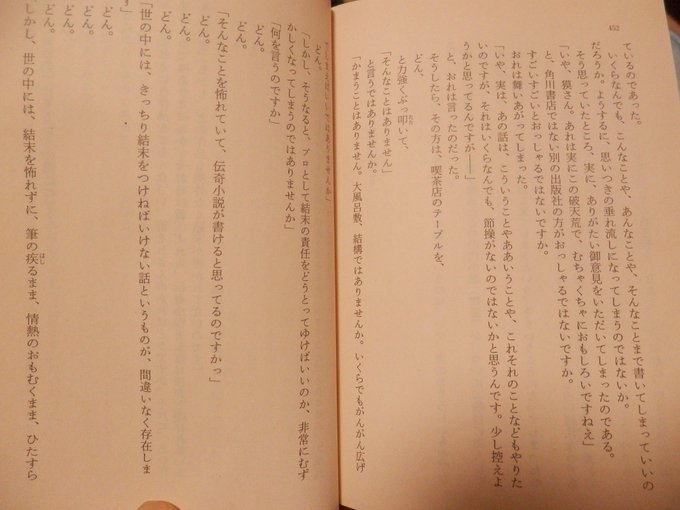 452
ているのであった。
いくらなんでも、こんなことや、あんなことや、そんなことまで書いてしまっていいの
だろうか。ようするに、思いつきの垂れ流しになってしまうのではないか。
そう思っていたところ、実に、ありがたい御意見をいただいてしまったのである。
「いや、獏さん。あれは実にこの破天荒で、むちゃくちゃにおもしろいですねえ」
と、角川書店ではない別の出版社の方がおっしゃるではないですか。
すごいすごいとおっしゃるではないですか。
おれは舞いあがってしまった。
「いや、実は、あの話は、こういうことやああいうことや、これそれのことなどもやりた
いのですが、それはいくらなんでも、節操がないのではないかと思うんです。少し控えよ
うかと思ってるんですが――」
と、おれは言ったのだった。
そうしたら、その方は、喫茶店のテーブルを、
どん、
と力強くぶっ叩いて、
「そんなことはありません」
と言うではありませんか。
「かまうことはありません。大風呂敷、結構ではありませんか。いくらでもがんがん広げ
ではありませんか」
どん。
「しかし、そうなると、プロとして結末の責任をどうとってゆけばいいのか、非常にむず
かしくなってしまうのではありませんか」
「何を言うのですか」
どん。
「そんなことを怖れていて、伝奇小説が書けると思ってるのですかっ」
どん。
どん。
どん。
「世の中には、きっちり結末をつけねばいけない話というものが、間違いなく存在しま
す」
どん。
どん。
「しかし、世の中には、結末を怖れずに、筆の疾るまま、情熱のおもむくまま、ひたすら